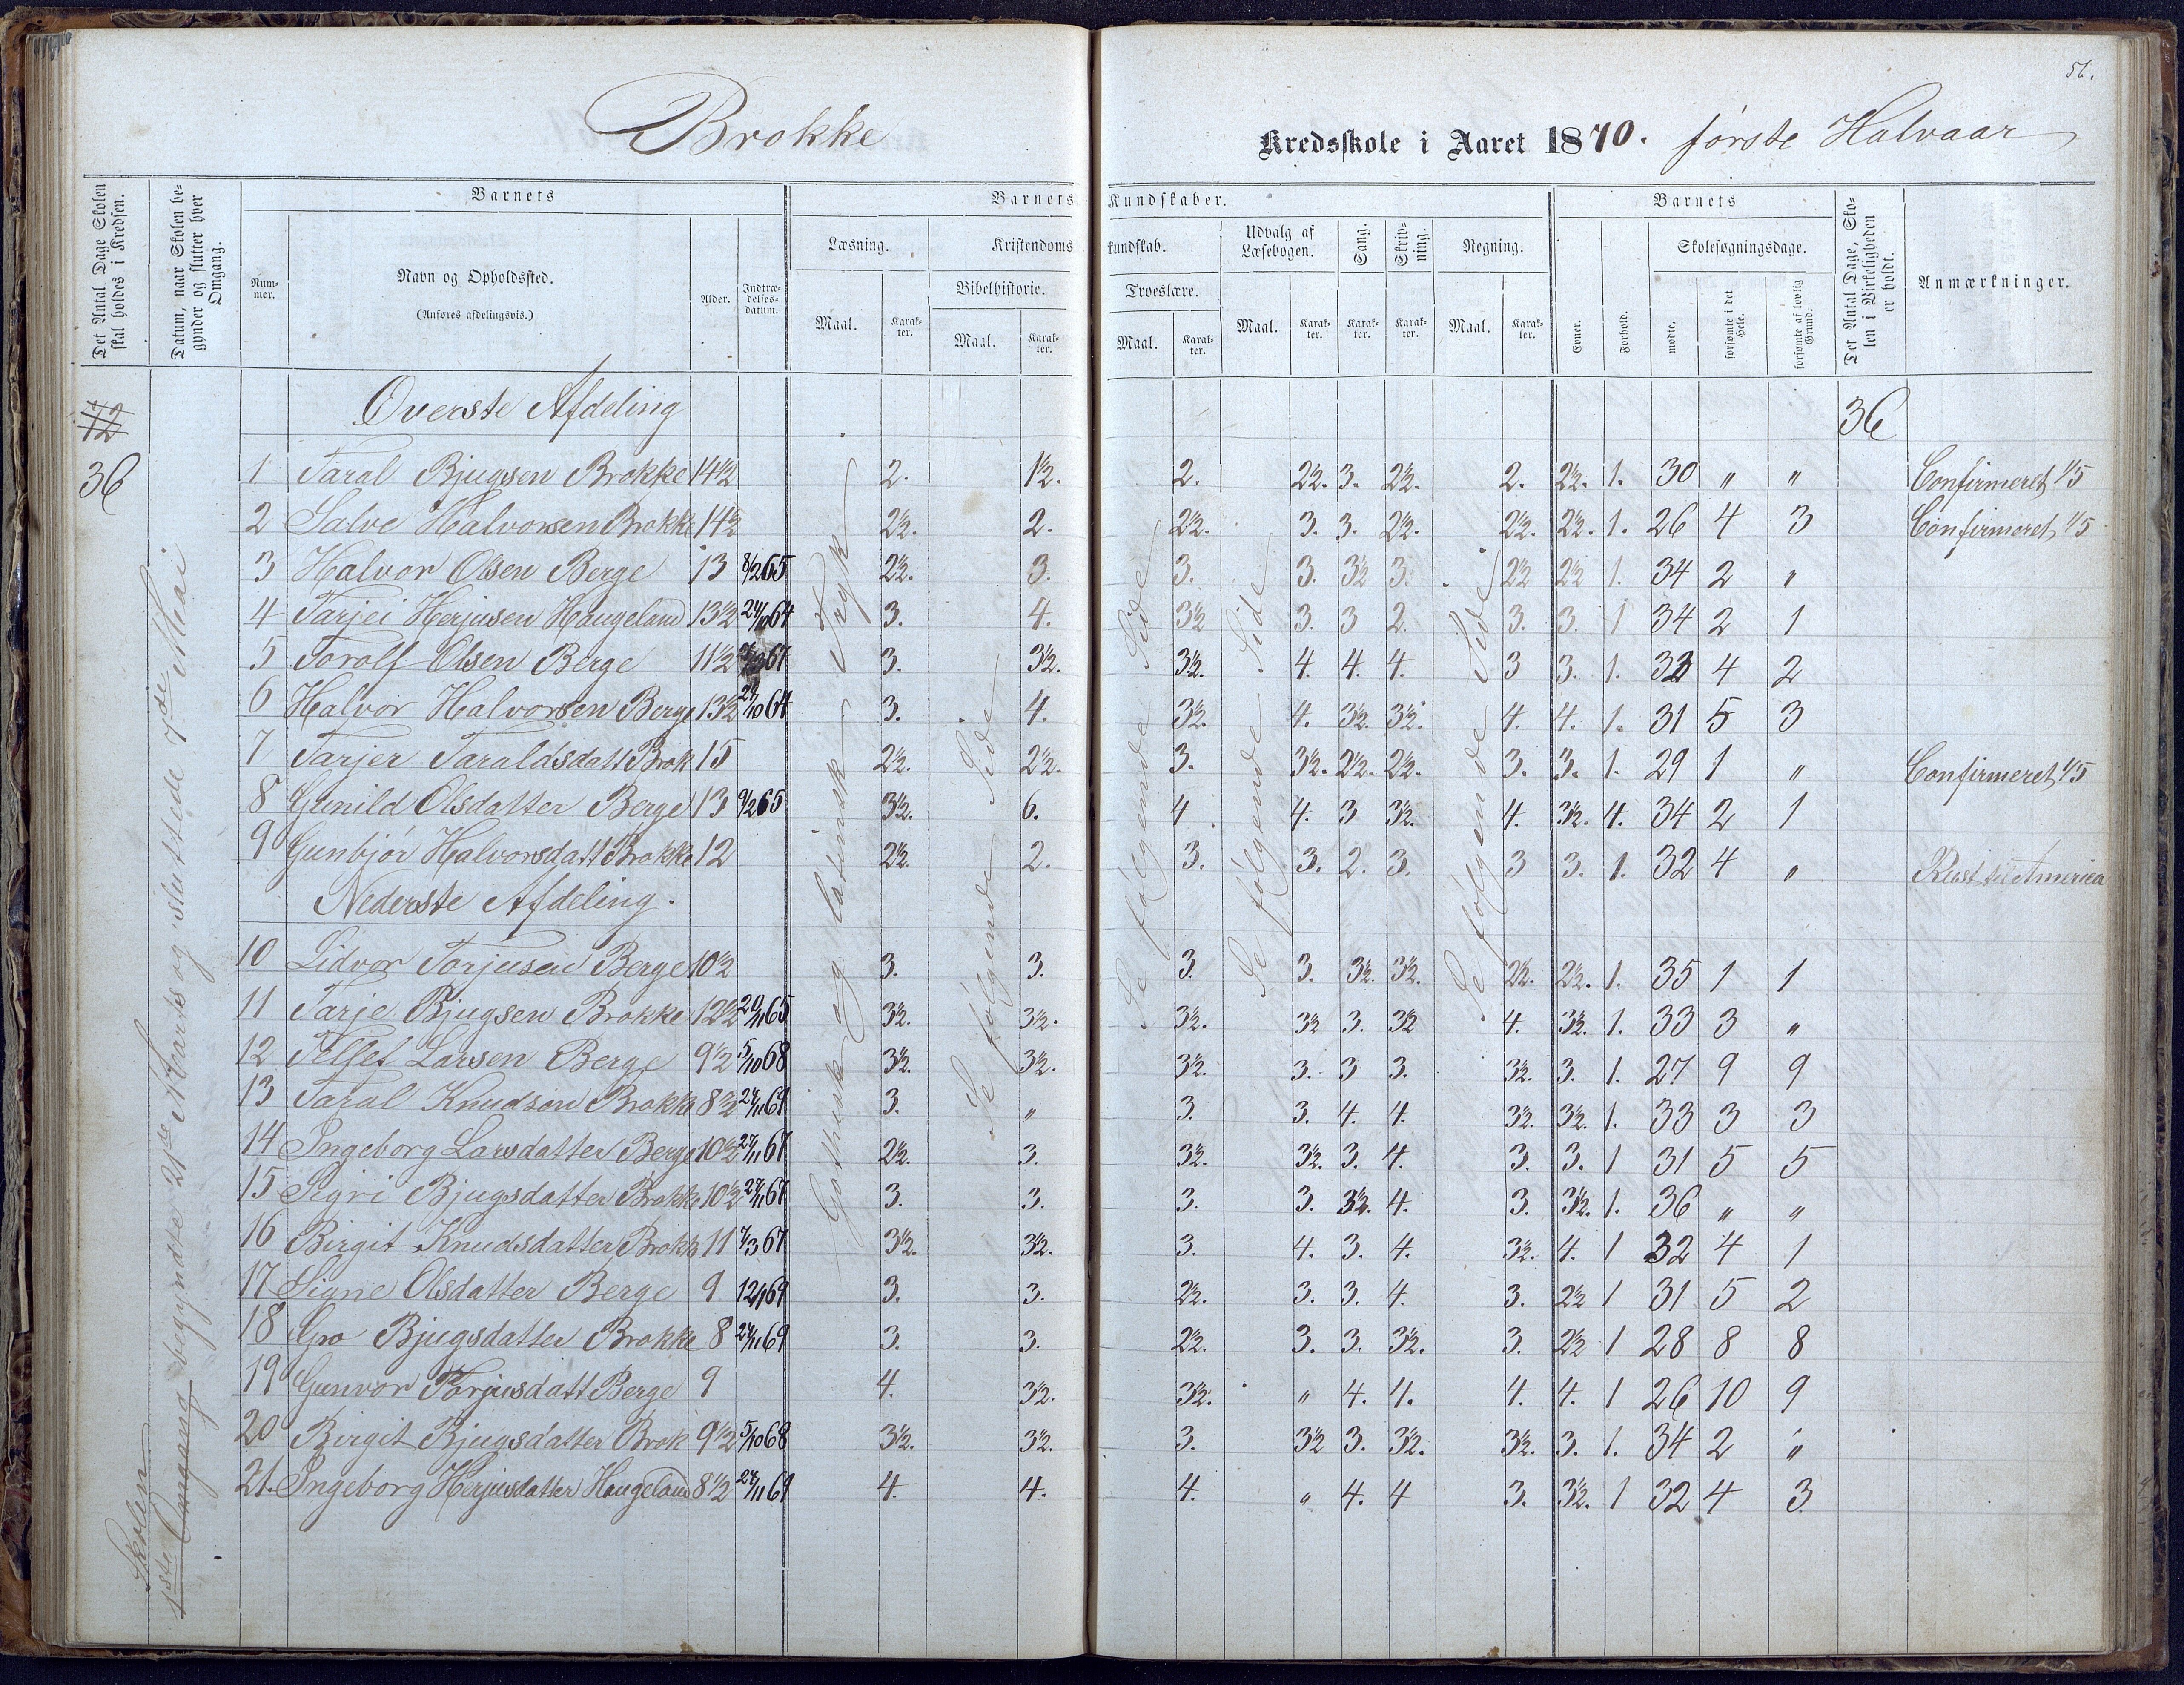 56.
Brokke
Kredsskole i Aaret 1870. første Halvaar
Det Antal Dage Skolen skal holdes i Kredsen.
Datum, naar Skolen begynder og slutter hver Omgang.
Barnets
Nummer.
Navn og Opholdssted.
(Anføres afdelingsvis.)
Alder.
Indtrædelsesdatum.
Barnets Kundskaber.
Læsning.
Maal.
Karakter.
Kristendomskundskab.
Bibelhistorie.
Maal.
Karakter.
Troeslære.
Maal.
Karakter.
Udvalg af Læsebogen.
Maal.
Karakter.
Sang.
Karakter.
Skrivning.
Karakter.
Regning.
Maal.
Karakter.
Barnets
Evner.
Forhold.
Skolesøgningsdage.
mødte.
forsømte i det Hele.
forsømte af lovlig Grund.
Det Antal Dage, Skolen i Virkeligheden er holdt.
Anmærkninger.
72
36
Skolen
1ste Omgang begyndte 21de Marts og sluttede 7de Mai
Gothisk og latinsk Tryk
Se følgende Side
Se følgende Side
Se følgende Side
Se følgende Side
Øverste Afdeling 36
1 Taral Bjugsen Brokke 14½ 2. 1½. 2. 2½. 3. 2½. 2. 2½. 1. 30 " " Confirmeret 1/5
2 Salve Halvorsen Brokke 14½ 2½. 2. 2½. 3. 3. 2½. 2½. 2½. 1. 26 4 3 Confirmeret 1/5
3 Halvor Olsen Berge 13 8/2 65 2½. 3. 3. 3. 3½ 3. 2½ 2½ 1. 34 2 "
4 Tarjei Herjusen Haugeland 13½ 24/10 64 3. 4. 3½ 3. 3 2. 3. 3. 1 34 2 1
5 Torolf Olsen Berge 11½ 67 3. 3½. 3½. 4. 4. 4. 3 3. 1. 32 4 2
6 Halvor Halvorsen Berge 13½ 24/10 64 3. 4. 3½. 4. 3½. 3½. 4. 4. 1. 31 5 3
7 Tarjer Taraldsdatt Brok 15 2½. 2½. 3. 3½. 2½. 2½. 3. 3. 1. 29 1 " Confirmeret 1/5
8 Gunild Olsdatter Berge 13 9/2 65 3½. 6. 4 4. 3 3½. 4. 3½. 4. 34 2 1
9 Gunbjør Halvorsdatt Brokke 12 2½. 2. 3. 3. 2. 3. 3 3. 1. 32 4 " Reist til America
Nederste Afdeling.
10 Lidvor Torjusen Berge 10½ 3. 3. 3. 3. 3½. 3½. 2½. 2½. 1. 35 1 1
11 Tarje Bjugsen Brokke 12½ 20/11 65 3½. 3½. 3½. 3½ 3. 3½ 4. 3½. 1. 33 3 "
12 Tellef Larsen Berge 9½ 5/10 68 3½. 3½. 3½. 3. 3 3. 3½. 3. 1. 27 9 9
13 Taral Knudson Brokke 8½ 24/11 69 3. " 3. 3. 4. 4. 3½. 3½. 1. 33 3 3
14 Ingeborg Larsdatter Berge 10½ 27/11 67 2½. 3. 3½. 3½. 3. 4. 3. 3. 1 31 5 5
15 Sigri Bjugsdatter Brokke 10½ 27/11 67 3. 3. 3. 3. 3½. 4. 3. 3½. 1. 36 " "
16 Birgit Knudsdatter Brokk 11 7/3 67 3½. 3½. 3. 4. 3. 4. 3½. 4. 1 32 4 1
17 Signe Olsdatter Berge 9 12/1 69 3. 3. 2½. 3. 3. 4. 3. 2½ 1 31 5 2
18 Gro Bjugsdatter Brokke 8 24/11 69 3. 3. 2½. 3. 3. 3½. 3. 2½ 1 28 8 8
19 Gunvor Torjusdatt Berge 9 4. 3½. 3½. " 4. 4. 4. 4. 1 26 10 9
20 Birgit Bjugsdatter Brok 9½ 5/10 68 3½. 3½. 3. 3½ 3. 3½. 3½. 3. 1. 34 2 "
21. Ingeborg Herjusdatter Haugeland 8½ 24/11 69 4. 4. 4. " 4. 4 3. 3½. 1 32 4 3